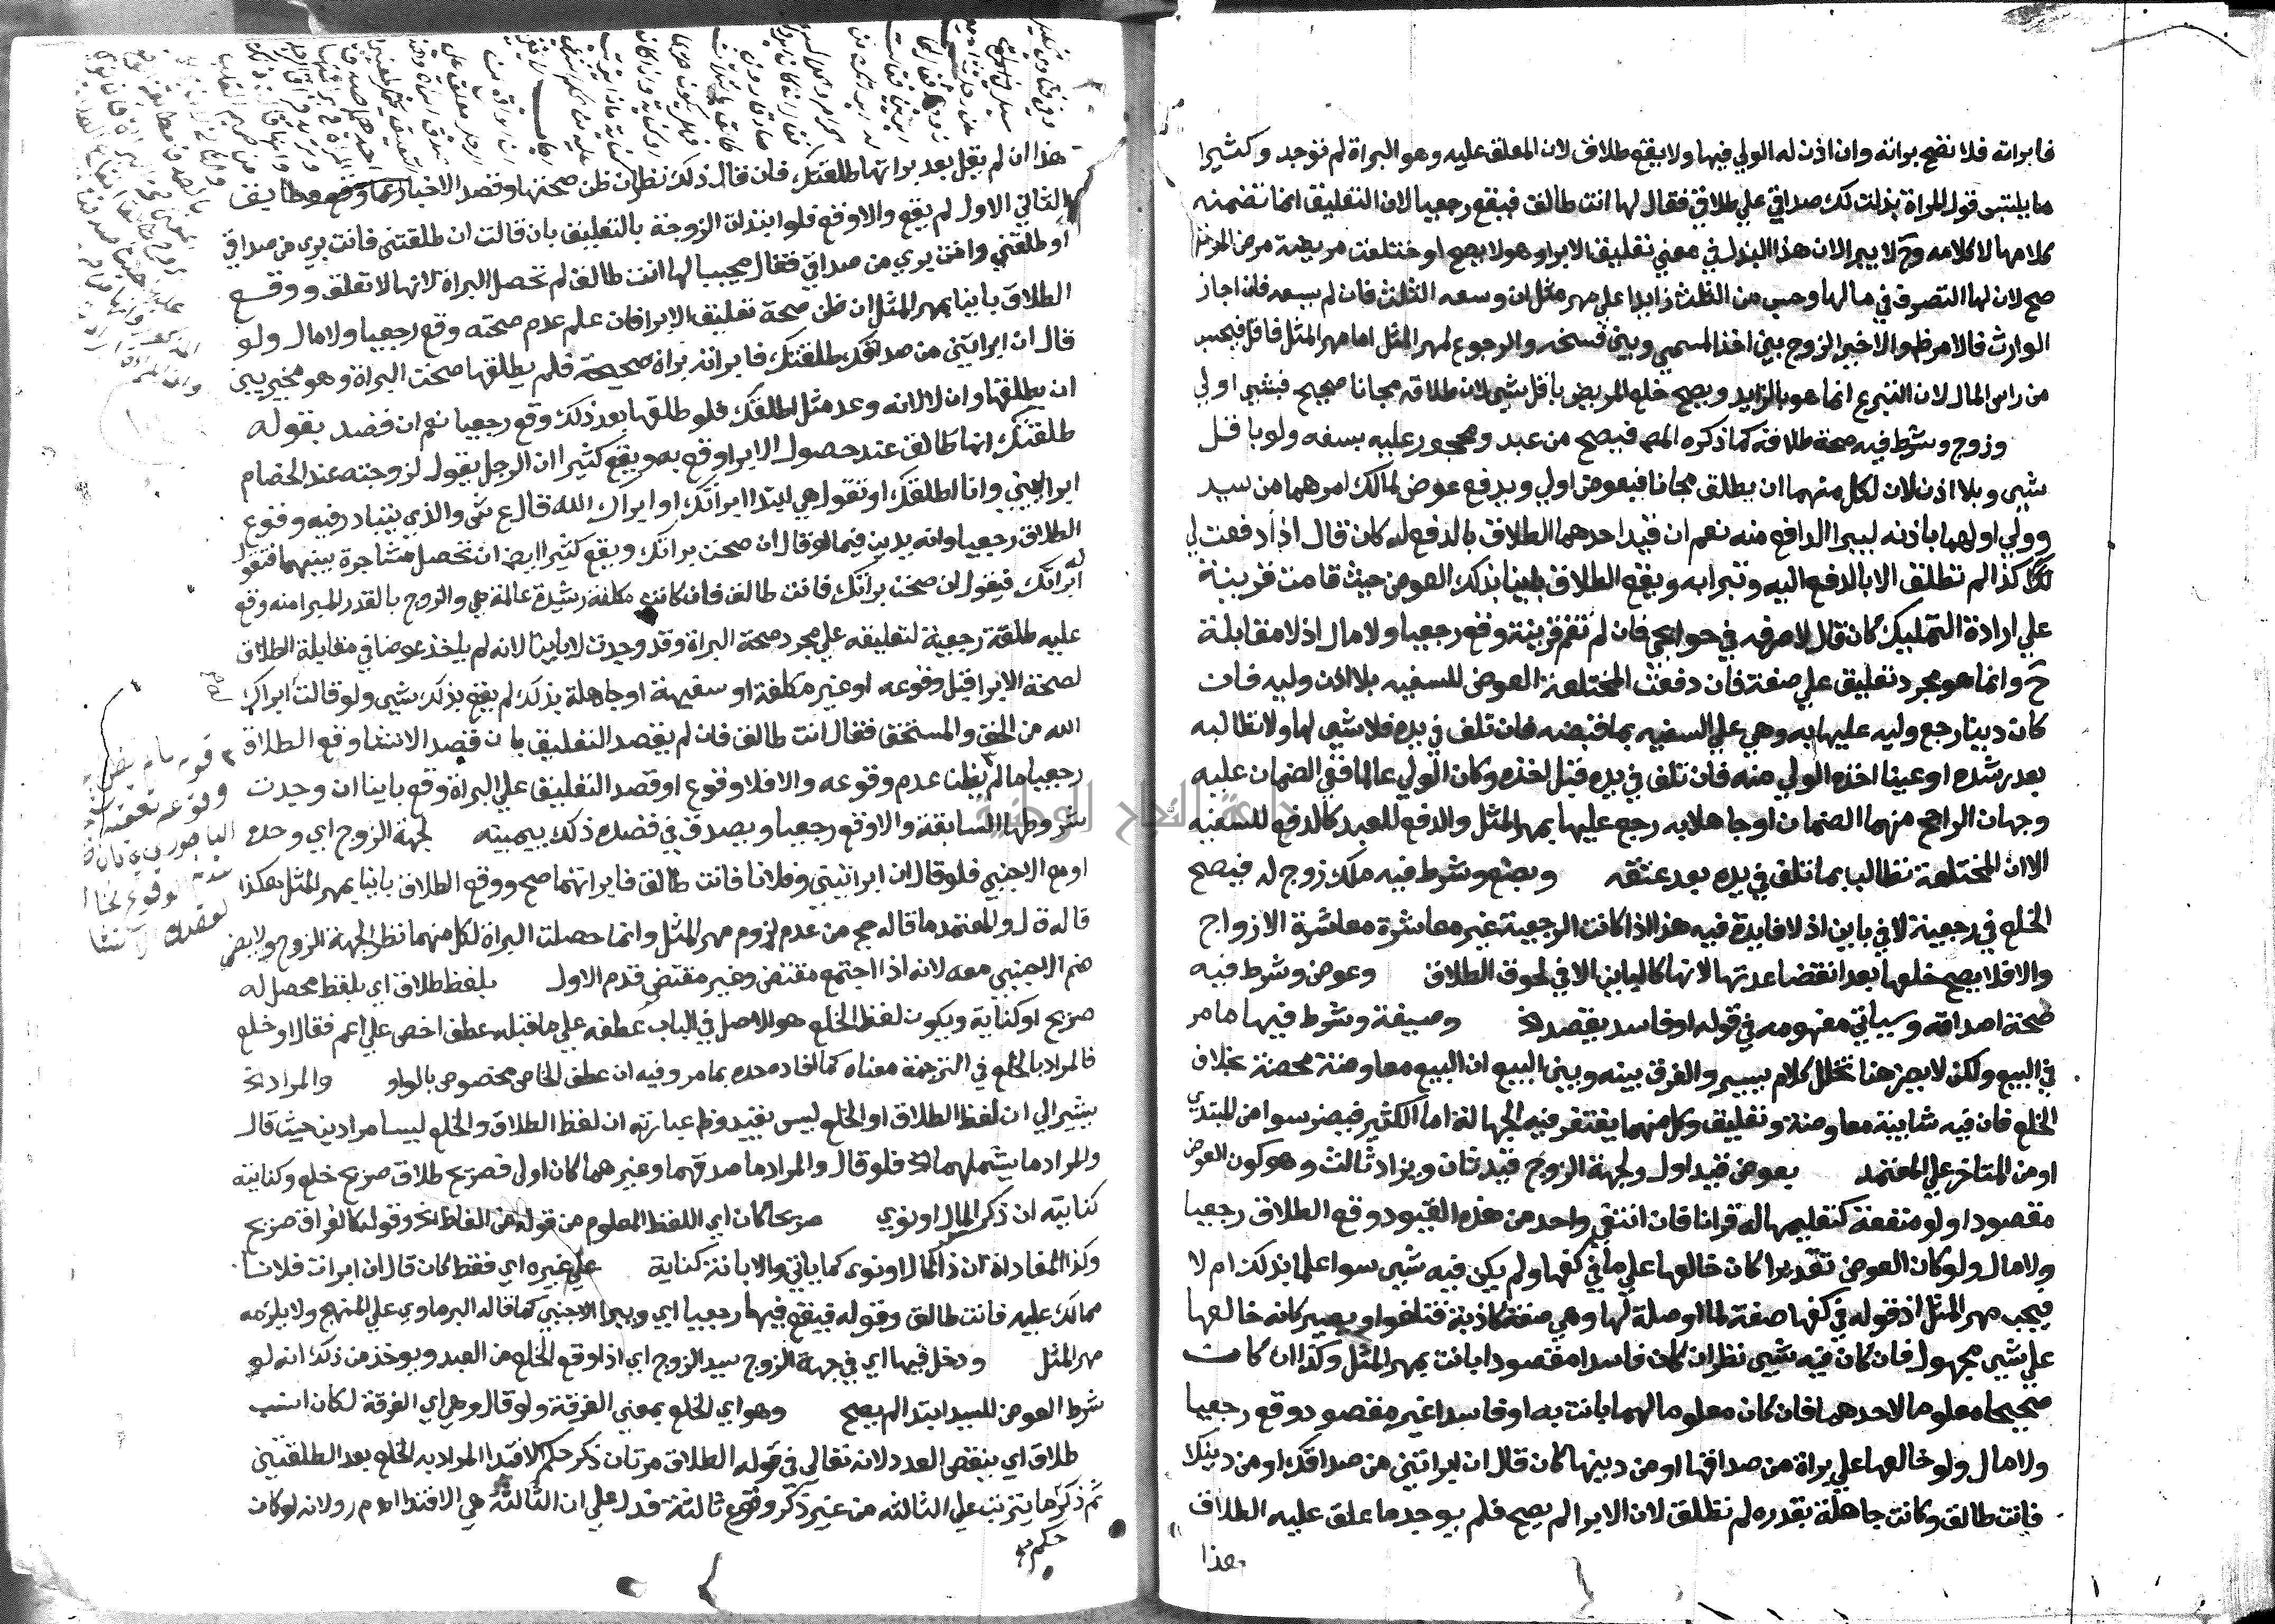 فابراته فلا تصح براته وان اذن له الولي فيها ولا يقع طلاق لان المعلق عليه وهو البراة لم توجد وكثيرا
ما يلتبس قول المراة بذلت لك صداقي علي طلاقي فقال لها انت طالق فيقع رجعيا لان التعليق انما تضمنه
كلامها لا كلامه وح لا يبرا لان هذا البذل في معني تعليق الابرا وهو لا يصح او ختلعت مريضة مرض الموت
صح لان لها التصرف في مالها وحسب من الثلث زايدا علي مهر مثل ان وسعه الثلث فان لم يسعه فان اجاز
الوارث فالامر ظ والا خير الزوج بين اخذ المسمي وبين فسخه والرجوع لمهر المثل اما مهر المثل فاقل فيحسب
من راس المال لان التبرع انما هو بالزايد ويصح خلع المريض باقل شي لان طلاقه مجانا صحيح فبشي اولي
وزوج وشرط فيه صحة طلاقه كما ذكره المص فيصح من عبد ومحجور عليه بسفه ولو باقل
شي وبلا اذن لان لكل منهما ان يطلق مجانا فبعوض اولي ويدفع عوض لمالك امرهما من سيد
وولي او لهما باذنه ليبرا الدافع منه نعم ان قيد احدهما الطلاق بالدفع له كان قال اذا دفعت لي
كذا لم تطلق الا بالدفع اليه وتبرا به ويقع الطلاق باينا بذلك العوض حيث قامت قرينة
علي ارادة التمليك كان قال لاصرفه في حوايجي فان لم تقم قرينة وقع رجعيا ولا مال اذ لا مقابلة
ح وانما هو مجرد تعليق علي صفة فان دفعت المختلعة العوض للسفيه بلا اذن وليه فان
كان دينا رجع وليه عليها به وهي علي السفيه بما قبضه فان تلف في يده فلا شي لها ولا تطالبه
بعد رشده او عينا اخذه الولي منه فان تلف في يده قبل اخذه وكان الولي عالما ففي الضمان عليه
وجهان الراجح منهما الضمان او جاهلا به رجع عليها بمهر المثل والدفع للعبد كالدفع للسفيه
الا ان المختلعة تطالب بما تلف في يده بعد عتقه وبضع وشرط فيه ملك زوج له فيصح
الخلع في رجعية لا في باين اذ لا فايدة فيه هذا اذا كانت الرجعية غير معاشرة معاشرة الازواج
والا فلا يصح خلعها بعد انقضا عدتها لانها كالباين الا في لحوق الطلاق وعوض وشرط فيه
صحة اصداقه وسياتي مفهومه في قوله او فاسد يقصد الخ وصيغة وشرط فيها ما مر
في البيع ولكن لا يضر هنا تخلل كلام يسير والفرق بينه وبين البيع ان البيع معاوضة محضة بخلاف
الخلع فان فيه شايبة معاوضة وتعليق وكل منهما يغتفر فيه الجهالة اما الكثير فيضر سوا من المبتدي
او من المتاخر علي المعتمد بعوض قيد اول ولجهة الزوج قيد ثان ويزاد ثالث وهو كون العوض
مقصودا ولو منفعة كتعليمها له قرانا فان انتفي واحد من هذه القيود وقع الطلاق رجعيا
ولا مال ولو كان العوض تقديرا كان خالعها علي ما في كفها ولم يكن فيه شي سوا علما بذلك ام لا
فيجب مهر المثل اذ قوله في كفها صفة لما او صلة لها وهي صفة كاذبة فتلغوا ويصير كانه خالعها
علي شي مجهول فان كان فيه شي نظر ان كان فاسدا مقصودا بانت بمهر المثل وكذا ان كان
صحيحا معلوما لاحدهما فان كان معلوما لهما بانت به او فاسدا غير مقصود وقع رجعيا
ولا مال ولو خالعها علي براة من صداقها او من دينها كان قال ان ابراتني من صداقك او من دينك
فانت طالق وكانت جاهلة بقدره لم تطلق لان الابرا لم يصح فلم يوجد ما علق عليه الطلاق
هذا
هذا ان لم يقل بعد براتها طلقتك فان قال ذلك نظر ان ظن صحتها وقصد الاخبار عما وقع وطابق
الثاني الاول لم يقع والا وقع فلو ابتدات الزوجة بالتعليق بان قالت ان طلقتني فانت بري من صداقي
او طلقني وانت بري من صداقي فقال مجيبا لها انت طالق لم تحصل البراة لانها لا تعلق ووقع
الطلاق باينا بمهر المثل ان ظن صحة تعليق الابرا فان علم عدم صحته وقع رجعيا ولا مال ولو
قال ان ابراتني من صداقك طلقتك فابراته براة صحيحة فلم يطلقها صحت البراة وهو مخير بين
ان يطلقها وان لا لانه وعد مثل اطلقك فلو طلقها بعد ذلك وقع رجعيا نعم ان قصد بقوله
طلقتك انها طالق عند حصول الابرا وقع به ويقع كثيرا ان الرجل يقول لزوجته عند الخصام
ابرايني وانا اطلقك او تقول هي ابتدا ابراتك او ابراك الله قال ع ش والذي يتبادر فيه وقوع
الطلاق رجعيا وانه يدين فيما لو قال ان صحت براتك ويقع كثيرا ايض ان تحصل مشاجرة بينهما فتقول له
ابراتك فيقول ان صحت براتك فانت طالق فان كانت مكلفة رشيدة عالمة هي والزوج بالقدر المبرا منه وقع
عليه طلقة رجعية لتعليقه علي مجرد صحة البراة وقد وجدت لا باينا لانه لم ياخذ عوضا في مقابلة الطلاق
لصحة الابرا قبل وقوعه او غير مكلفة او سفيهة او جاهلة بذلك لم يقع بذلك شي ولو قالت ابراك
الله من الحق والمستحق فقال انت طالق فان لم يقصد التعليق بان قصد الانشا وقع الطلاق
رجعيا ما لم يظن عدم وقوعه والا فلا وقوع او قصد التعليق علي البراة وقع باينا ان وجدت
شروطها السابقة والا وقع رجعيا ويصدق في قصده ذلك بيمينه لجهة الزوج اي وحده
او مع الاجنبي فلو قال ان ابراتيني وفلانا فانت طالق فابراتهما صح ووقع الطلاق باينا بمهر المثل هكذا
قاله ق ل والمعتمد ما قاله حج من عدم لزوم مهر المثل وانما حصلت البراة لكل منهما نظرا لجهة الزوج ولا يضر
ضم الاجنبي معه لانه اذا اجتمع مقتض وغير مقتضي قدم الاول بلفظ طلاق اي بلفظ محصل له
صريح او كناية ويكون لفظ الخلع هو الاصل في الباب عطفه علي ما قبله عطف اخص علي اعم فقال او خلع
فالمراد بالخلع في الترجمة معناه كما افاده حده بما مر وفيه ان عطف الخاص مخصوص بالواو والمراد الخ
يشير الي ان لفظ الطلاق او الخلع ليس بقيد وظ عبارته ان لفظ الطلاق والخلع ليسا مرادين حيث قال
والمراد ما يشملهما الخ فلو قال والمراد ما صدقهما وغيرهما كان اولي فصريح طلاق صريح خلع وكنايته
كنايته ان ذكر المال او نوي صريحا كان اي اللفظ المعلوم من قوله من الفاظ الخ وقوله كالفراق صريح
وكذا المفاداة ان ذكر المال او نوي كما ياتي والابانة كناية علي غيره اي فقط كان قال ان ابرات فلانا
مما لك عليه فانت طالق وقوله فيقع فيها رجعيا اي ويبرا الاجنبي كما قاله البرماوي علي المنهج ولا يلزمه
مهر المثل ودخل فيها اي في جهة الزوج سيد الزوج اي اذا وقع الخلع من العبد ويوخذ من ذلك انه لو
شرط العوض للسيد ابتدا لم يصح وهو اي الخلع بمعني الفرقة ولو قال وهي اي الفرقة لكان انسب
طلاق اي ينقص العدد لانه تعالي في قوله الطلاق مرتان ذكر حكم الافتدا المراد به الخلع بعد الطلقتين
ثم ذكر ما يترتب علي الثالثة من غير ذكر وقوع ثالثة فدل علي ان الثالثة هي الافتدا اه م ر ولانه لو كان
حكم